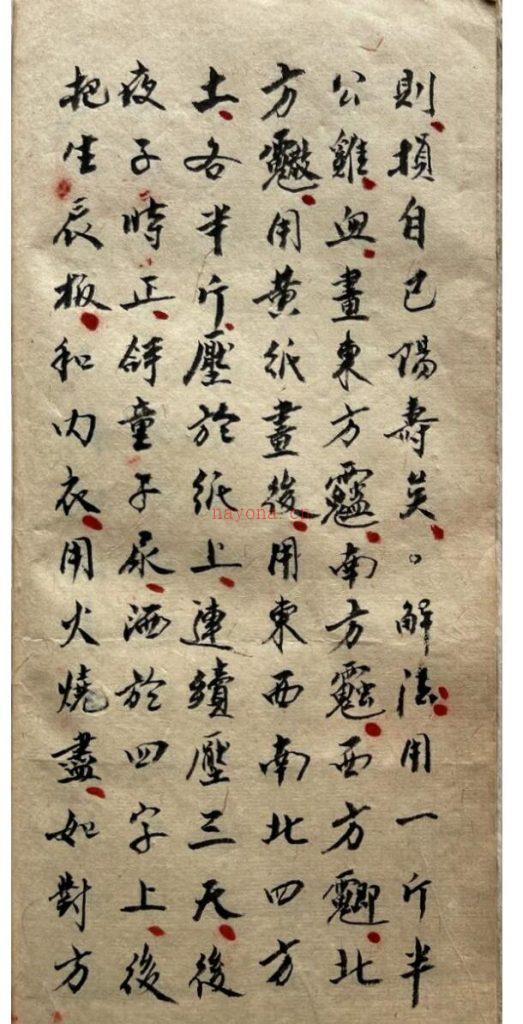 則損自己陽壽矣。解法用一斤半
公雞血畫東方南方西方北
方用黄紙畫後用東西南北四方
土各半斤壓於紙上連續壓三天後
夜子時正童子尿洒於四字上後
把生辰板和内衣用火燒盡如對方
nayona.cn